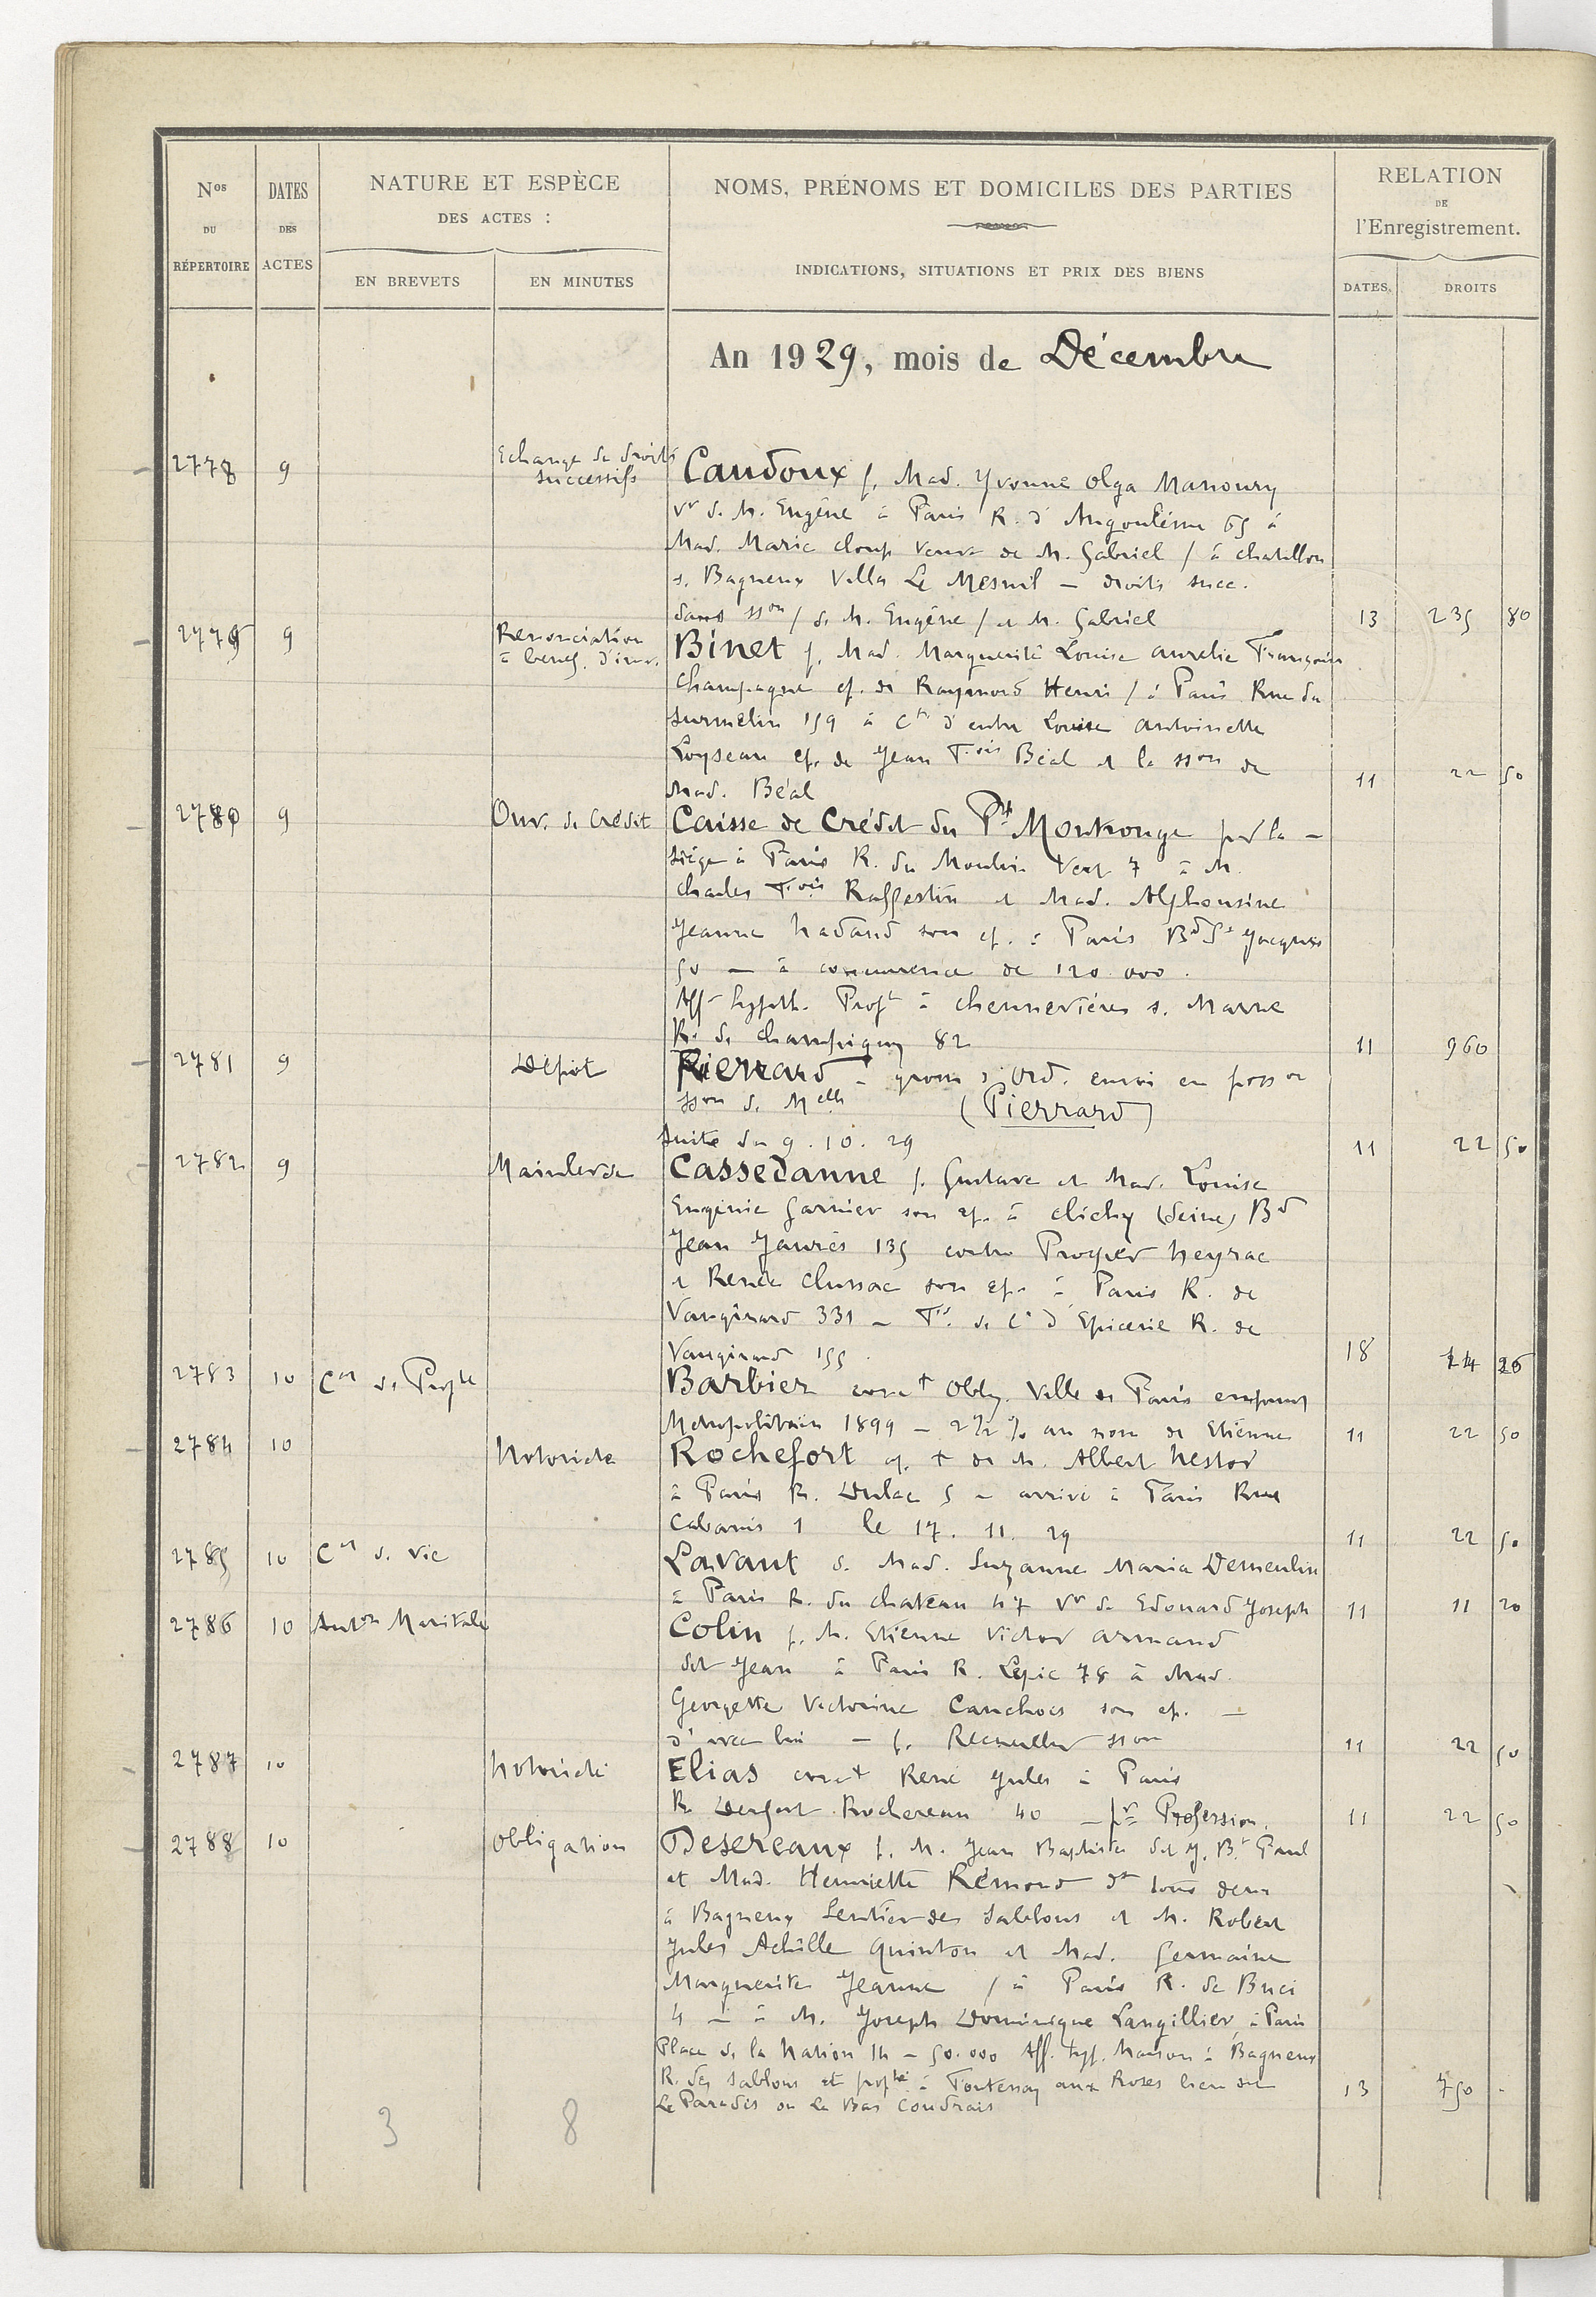 Nos DU RÉPERTOIRE
DATES DES ACTES
NATURE ET ESPÈCE
DES ACTES :
EN BREVETS
EN MINUTES
NOMS, PRÉNOMS ET DOMICILES DES PARTIES
INDICATIONS, SITUATIONS ET PRIX DES BIENS
RELATION
DE
l'Enregistrement.
DATES.
DROITS
An 1929, mois de Décembre
2778 9 Echange de droits successifs
Caudoux p. Mad. Yvonne Olga Manoury
Vve d. M. Eugène à Paris R. d'Angoulême 65 à
Mad. Marie Cloup Veuve de M. Gabriel / à Chatillon
s. Bagneux Villa Le Mesnil — droits succ.
dans sson / d. M. Eugène / et M. Gabriel 13 235 80
2779 9 Renonciation à benef. d'inv.
Binet p. Mad. Marguerite Louise Aurelie Françoise
Champagne ep. de Raymond Henri / à Paris Rue du
Surmelin 159 à Ct d'entre Louise Antoinette
Loyseau ep. de Jean Fois Béal et la sson de
Mad. Béal 11 22 50
2780 9 Ouv. de Crédit
Caisse de Crédit du Pt Montrouge —
siège à Paris R. du Moulin Vert 7 à M.
Charles Fois Raffestin et Mad. Alphonsine
Jeanne Hadand son ep. à Paris Bd St Jacques
50 — à concurrence de 120.000.
Aff. hypoth. Propt à Chennevières s. Marne
R. de Champigny 82 11 960
2781 9 Dépôt
Pierrard — d'Ord. envoi en posson
sson d. Melle (Pierrard)
suite du 9.10.29 11 22 50
2782 9 Mainlevée
Cassedanne p. Gustave et Mad. Louise
Eugénie Garnier son ep. à Clichy (Seine) Bd
Jean Jaurès 135 contre Prosper Heyrac
et Renée Clussac son ep. à Paris R. de
Vaugirard 331 — Fds de Ce d'Epicerie R. de
Vaugirard 155. 18 14 26
2783 10 Con de Propte
Barbier conct Oblig. Ville de Paris emprunt
Metropolitain 1899 — 2½ % au nom de Etienne 11 22 50
2784 10 Notoriété
Rochefort ap. † de M. Albert Nestor
à Paris R. Dulac 5 — arrivé à Paris Rue
Cabanis 1 le 17. 11. 29 11 22 50
2785 10 Cat d. Vie
Lavaut d. Mad. Suzanne Maria Demeulin
à Paris R. du Chateau 47 Vve de Edouard Joseph 11 11 20
2786 10 Auton Maritale
Colin p. M. Etienne Victor Armand
dit Jean à Paris R. Lepic 78 à Mad.
Georgette Victorine Cauchois son ep. —
d'avec lui — p. Recueillir sson 11 22 50
2787 10 Notoriété
Elias conct René Jules à Paris
R. Denfert Rochereau 40 — pr Profession. 11 22 50
2788 10 Obligation
Desereaux p. M. Jean Baptiste dit J. Bte Paul
et Mad. Henriette Rémond de tous deux
à Bagneux Sentier des Sablons et M. Robert
Jules Achille Quinton et Mad. Germaine
Marguerite Jeanne / à Paris R. de Buci
4 — à M. Joseph Dominique Langillier, à Paris
Place de la Nation 14 — 50.000 Aff. hyp. Maison à Bagneux
R. des Sablons et propté à Fontenay aux Roses lieu dit
Le Paradis ou Le Bas Coudrais 13 750 -
3 8